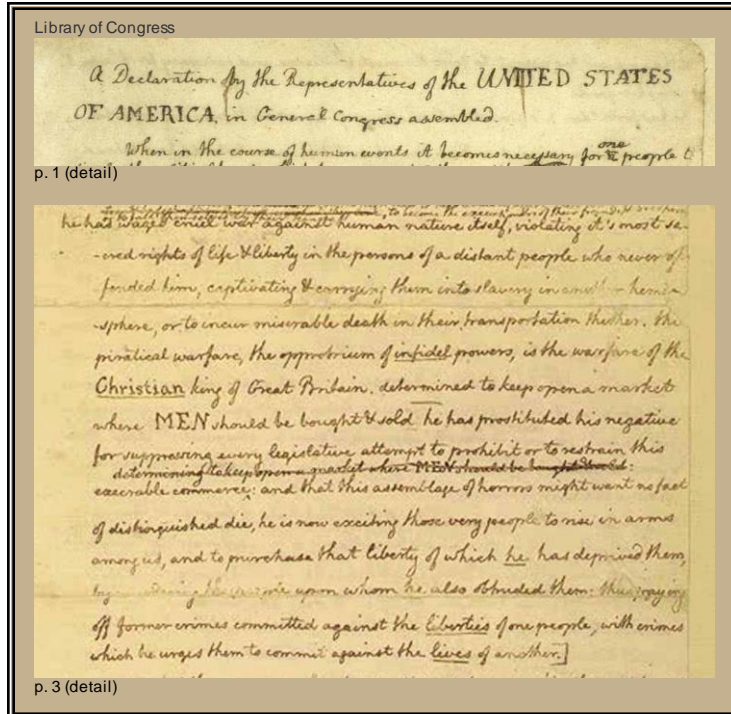 Library of Congress
a Declaration by the Representatives of the UNITED STATES
OF AMERICA, in General Congress assembled.
When in the course of human events it becomes necessary for one people t
p. 1 (detail)
he has waged cruel war against human nature itself, violating it's most sa-
-cred rights of life & liberty in the persons of a distant people who never of-
-fended him, captivating & carrying them into slavery in another hemi-
-sphere, or to incur miserable death in their transportation thither. this
piratical warfare, the opprobrium of infidel powers, is the warfare of the
Christian king of Great Britain. determined to keep open a market
where MEN should be bought & sold he has prostituted his negative
for suppressing every legislative attempt to prohibit or to restrain this
determining to keep open a market where MEN should be bought & sold:
execrable commerce: and that this assemblage of horrors might want no fact
of distinguished die, he is now exciting those very people to rise in arms
among us, and to purchase that liberty of which he has deprived them,
upon whom he also obtruded them: thus paying
off former crimes committed against the liberties of one people, with crimes
which he urges them to commit against the lives of another.]
p. 3 (detail)